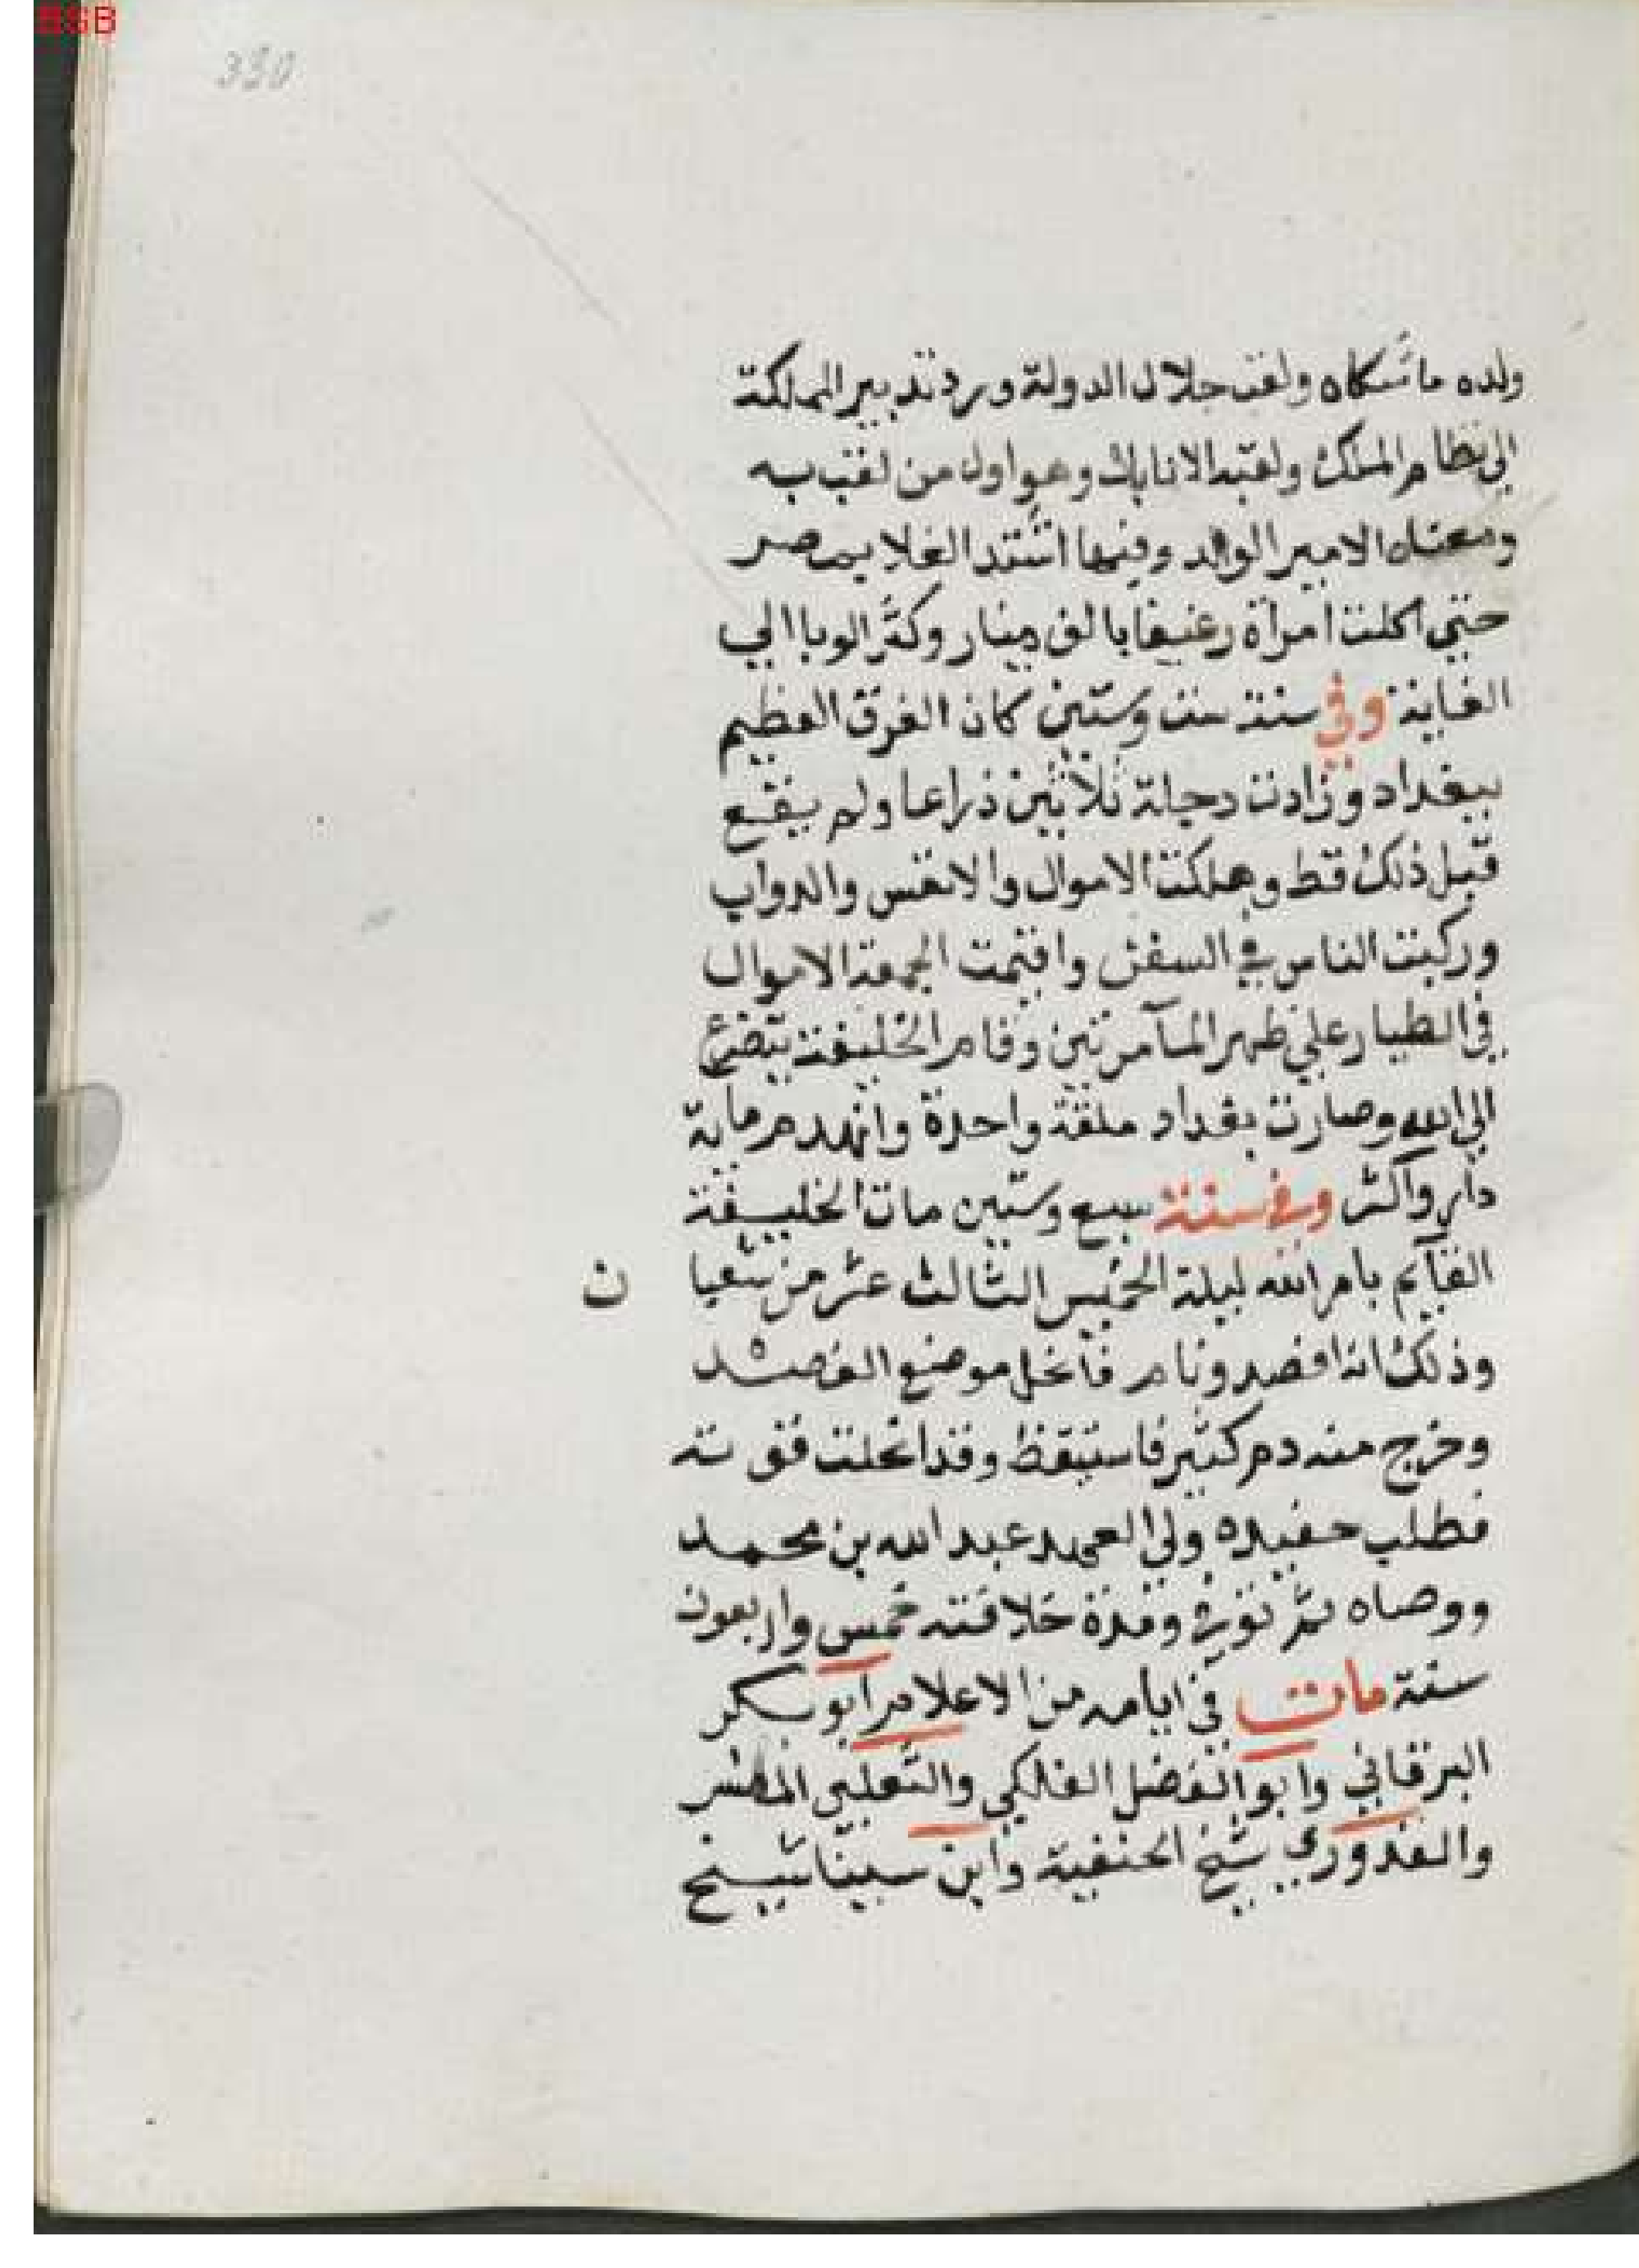 BSB
330
ولده ماشكاه ولقب جلال الدولة ورد تدبير المملكة
الى نظام الملك ولقبه الاتابك وهو اول من لقب به
ومعناه الامير الوالد وفيها اشتد الغلا بمصر
حتي اكلت امرأة رغيفا بالف دينار وكثر الوبا الي
الغاية وفي سنة ست وستين كان الغرق العظيم
ببغداد وزادت دجلة ثلاثين ذراعا ولم يقع
قبل ذلك قط وهلكت الاموال والانفس والدواب
وركبت الناس في السفن واقيمت الجمعة الاموال
في الطيار علي ظهر المآ مرتين وقام الخليفة يتضرع
الي الله وصارت بغداد ملقة واحدة وانهدم ماية
دار واكثر وفي سنة سبع وستين مات الخليفة
القآيم بامر الله ليلة الخميس الثالث عشر من شعبا ن
وذلك انه افصد ونام فانحل موضع الفصد
وخرج منه دم كثير فاستيقظ وقد انحلت قوته
فطلب حفيده ولي العهد عبد الله بن محمد
ووصاه ثم توفي ومدة خلافته خمس واربعون
سنة مات في ايامه من الاعلام ابو بكر
البرقاني وابو الفضل الفلكي والثعلبي المفسر
والقدوري شيخ الحنفية وابن سينا شيخ